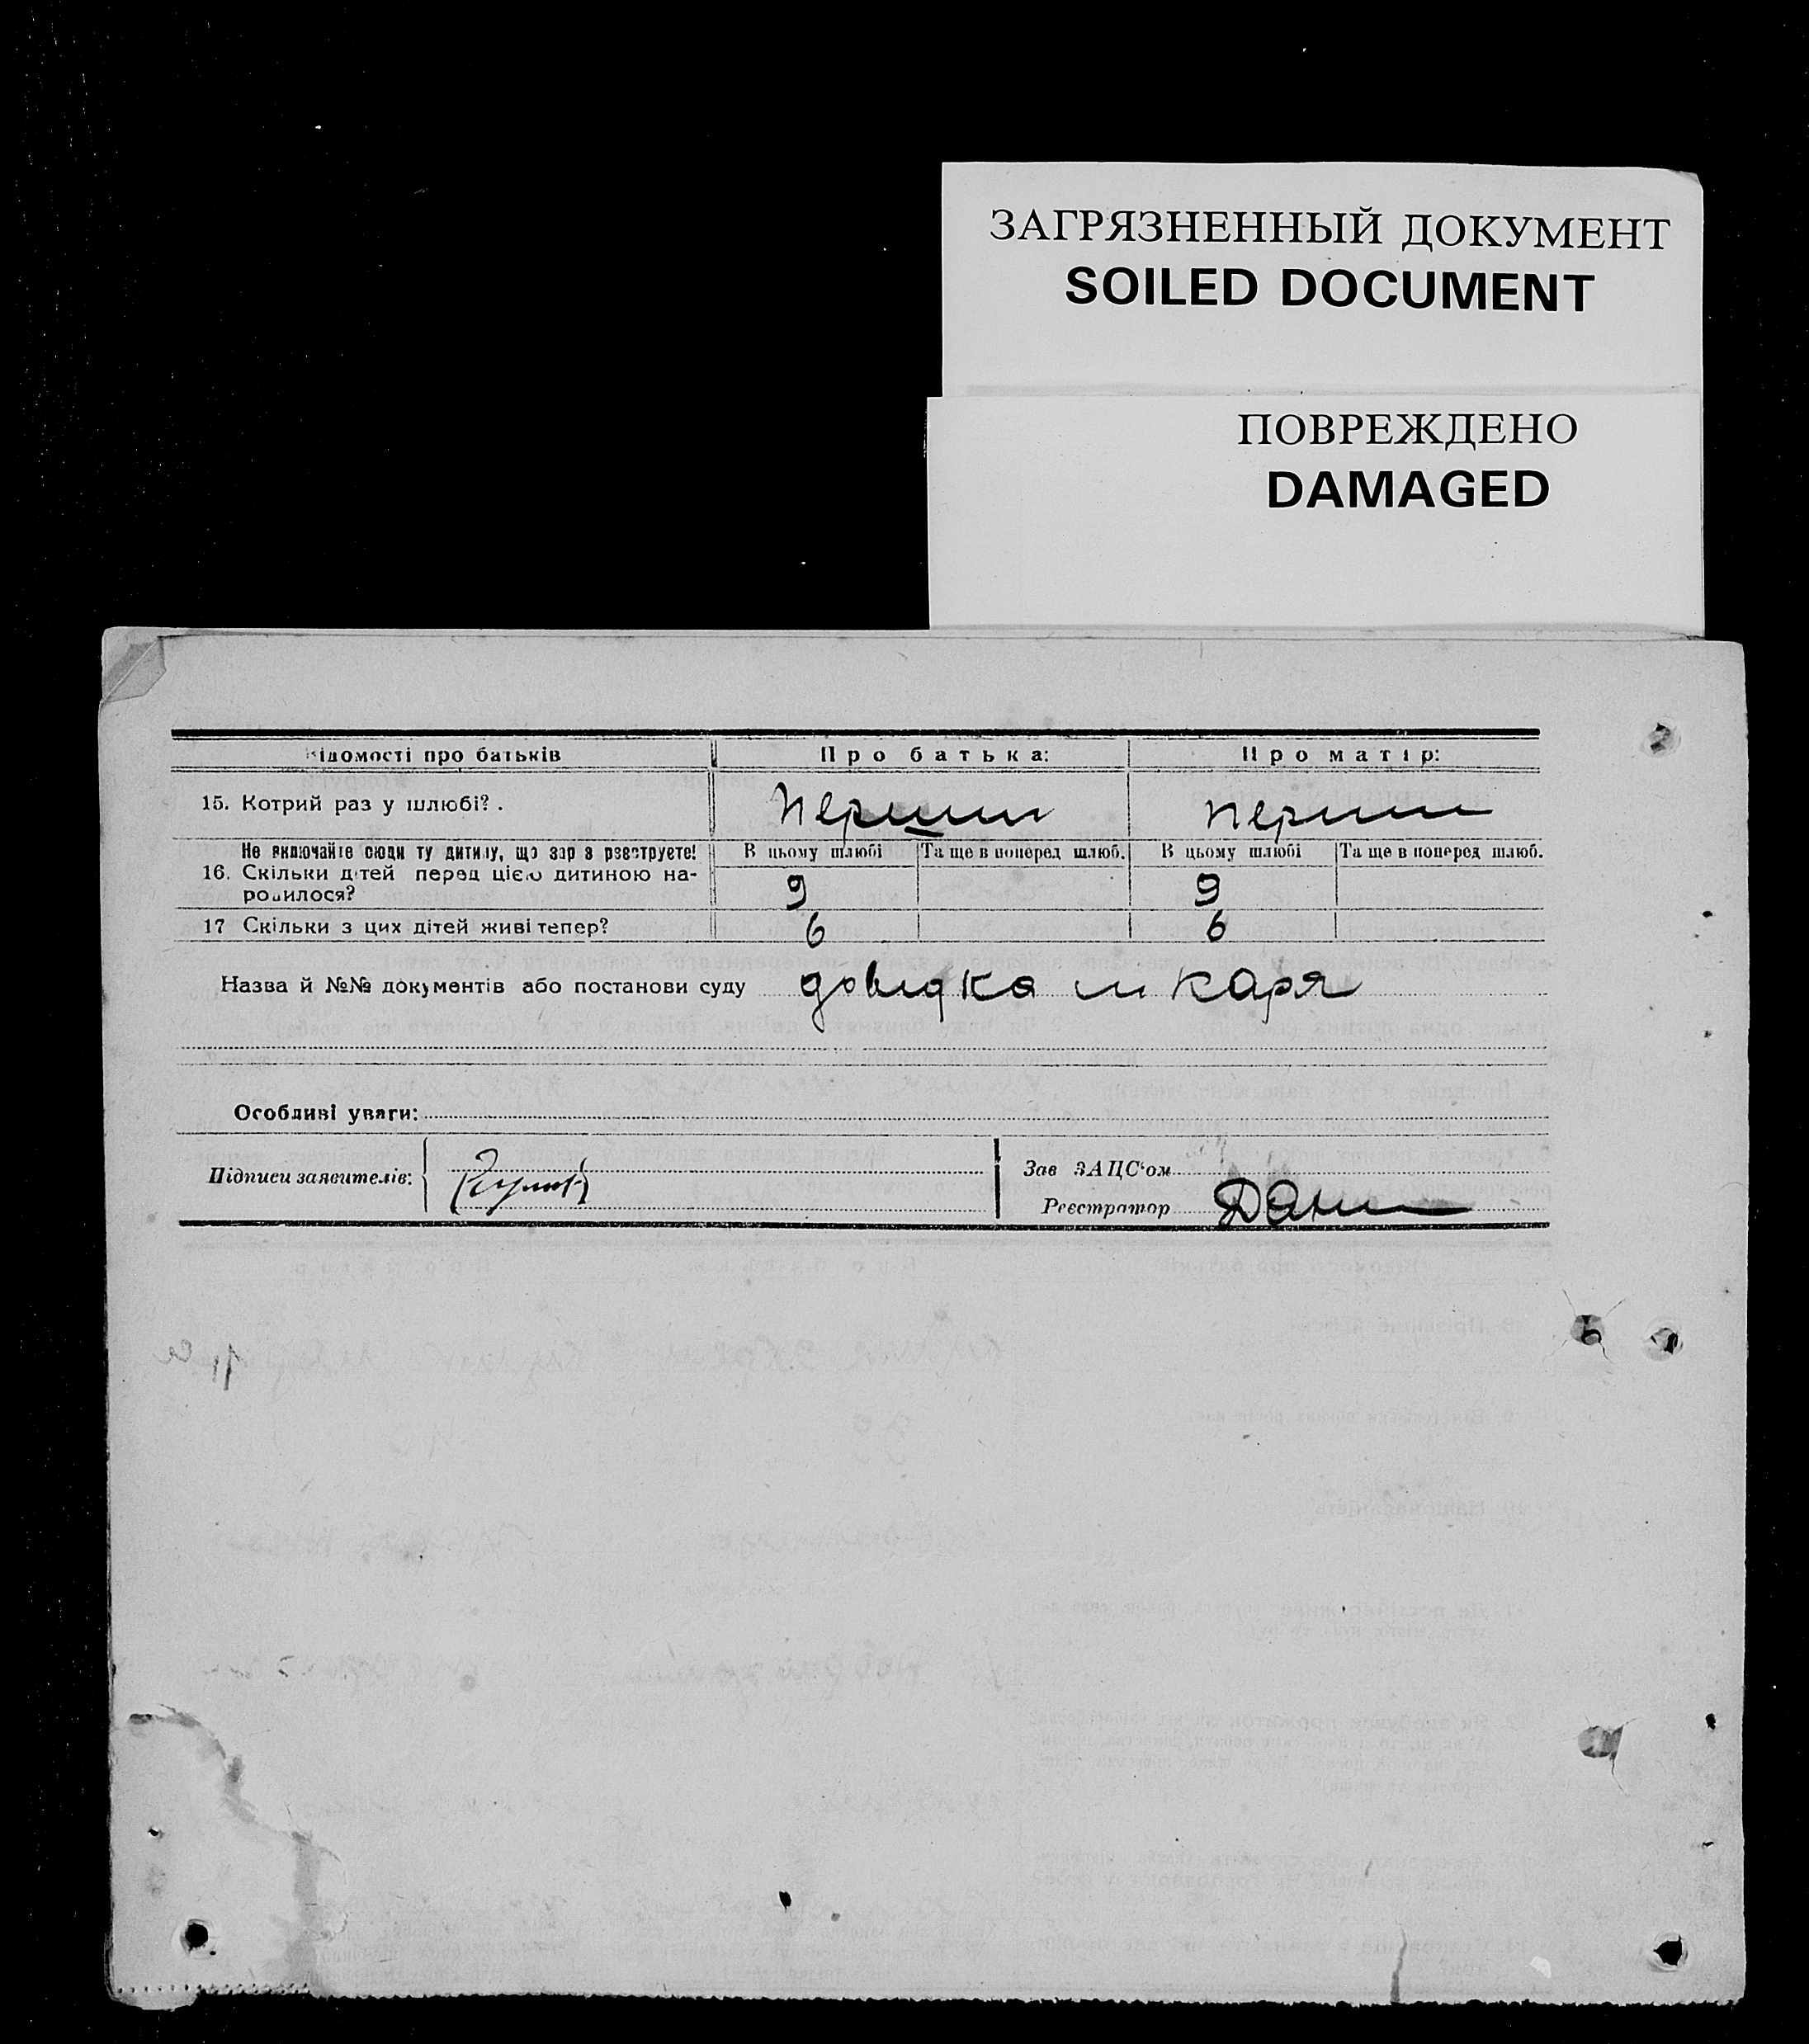 ЗАГРЯЗНЕННЫЙ ДОКУМЕНТ
SOILED DOCUMENT
ПОВРЕЖДЕНО
DAMAGED
Відомості про батьків Про батька: Про матір:
15. Котрий раз у шлюбі? . перший перший
Не включайте сюди ту дитину, що зараз реєструєте! В цьому шлюбі Та ще в поперед шлюб. В цьому шлюбі Та ще в поперед шлюб.
16. Скільки дітей перед цією дитиною на-
родилося? 9 9
17 Скільки з цих дітей живі тепер? 6 6
Назва й №№ документів або постанови суду довідка лікаря
Особливі уваги:
Підписи заявителів: Зав ЗАЦС'ом
Реєстратор